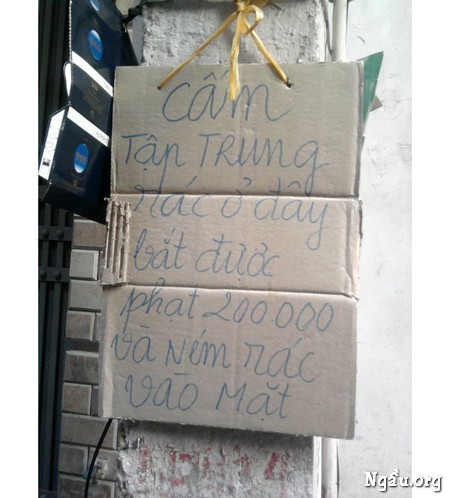 Cấm
Tập Trung
rác ở đây
bắt được
phạt 200.000
và Ném rác
vào Mặt
Ngầu.org